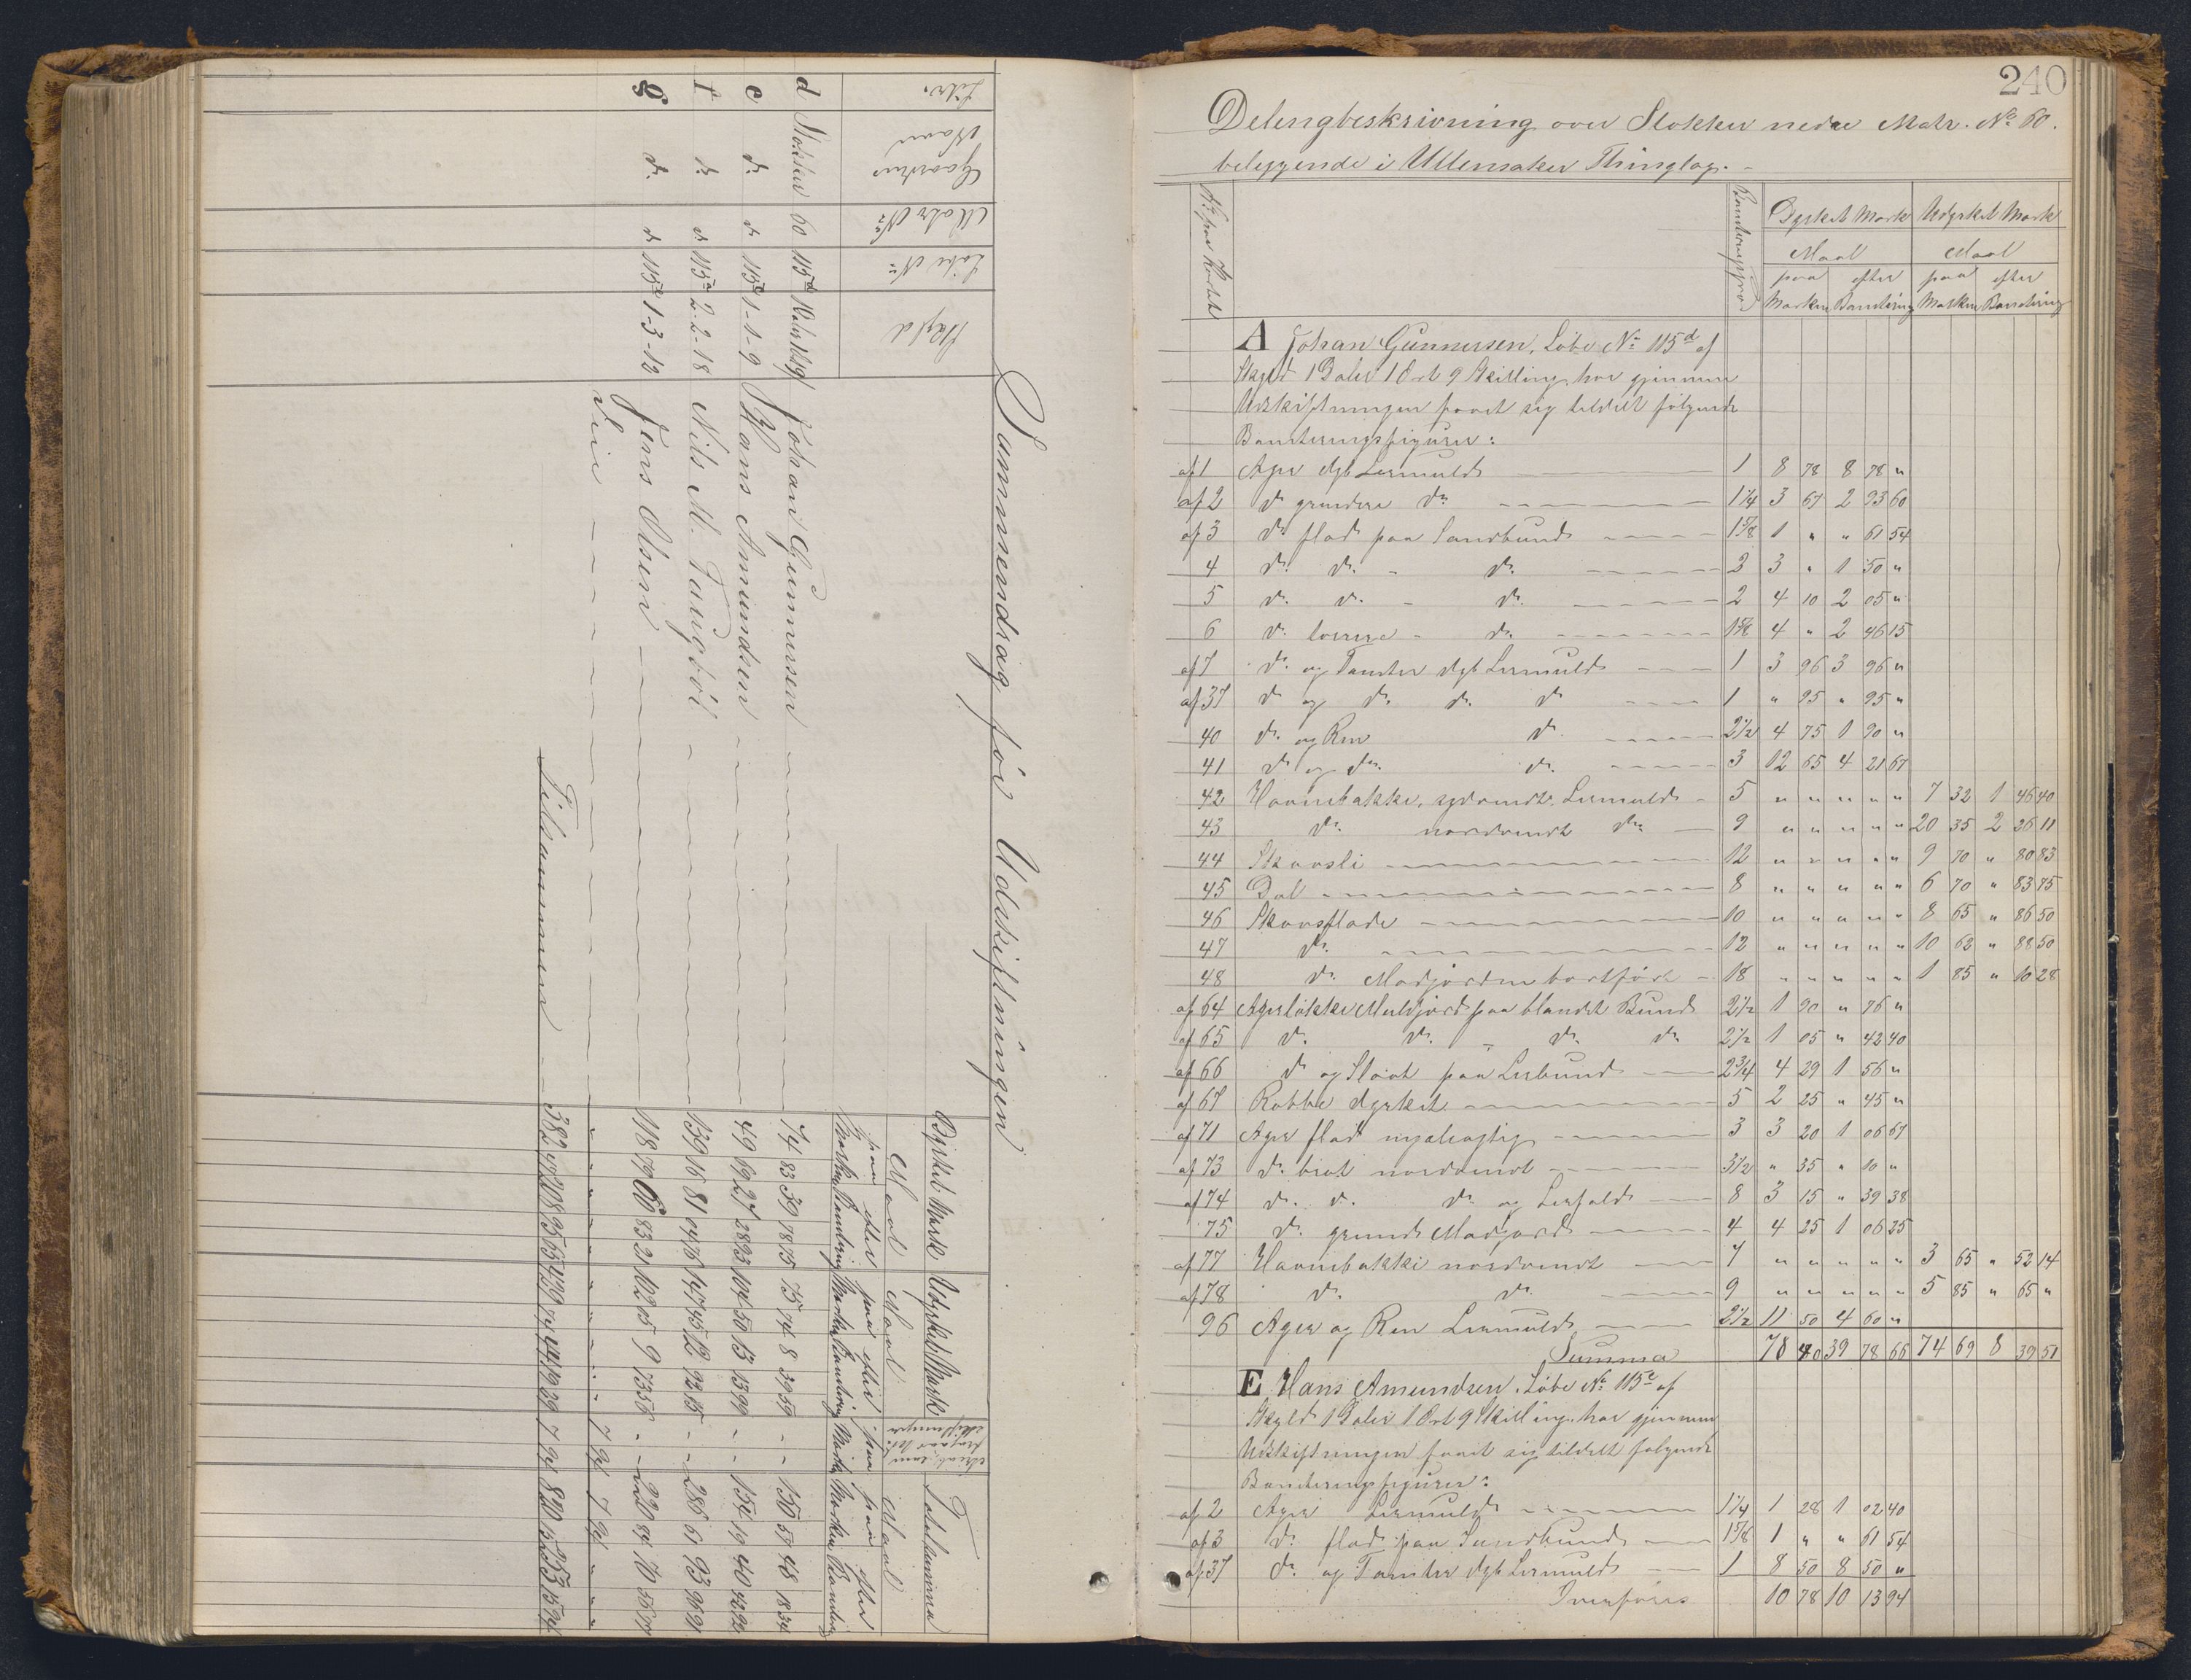 Sammendrag før Udskiftningen
Litr. Gaardens Navn Matr. No Løbe No Skyld Dyrket Mark Udyrket Mark Totalsumma
Maal Maal Maal
paa Marken efter Bonitering paa Marken efter Bonitering paa Marken paa Marken efter Bonitering
d Stokker 60 115d 1 Daler 1 Ort 9 ſ Johan Gunnersen 74 83 39 78 75 75 74 8 39 59 - - 150 57 48 18 34
e do do 115e 1-1-9 Hans Amundsen 49 69 27 28 93 104 50 13 13 99 - - 154 19 40 42 92
f do do 115a 2-2-18 Nils M. Taugbøl 139 16 81 04 76 147 45 12 92 15 - - 286 61 93 96 91
g do do 115c 1-3-12 Jens Olsen 118 79 60 83 21 102 05 9 73 56 - - 220 84 70 56 77
Veie " " " " " " " " " " 7 94 7 94 " " "
Tilsammen 382 47 208 95 65 429 74 44 19 29 7 94 820 15 253 15 94
240
Delingbeskrivning over Stokker nedre Matr. No 60.
beliggende i Ullensaker Thinglag.
No paa Kartet Boniteringsgrad Dyrket Mark Udyrket Mark
Maal Maal
paa Marken efter Bonitering paa Marken efter Bonitering
A Johan Gunnersen, Løbe No 115d af
Skyld 1 Daler 1 Ort 9 Skilling har gjennem
Udskiftningen faaet sig tildelt følgende
Boniteringsfigurer:
af 1 Ager dyb Lermuld 1 8 78 8 78 "
af 2 do grundere do 1¼ 3 67 2 93 60
af 3 do flad paa Sandbund 1⅝ 1 " " 61 54
4 do do - do 2 3 " 1 50 "
5 do do - do 2 4 10 2 05 "
6 do lavere - do 1⅝ 4 " 2 46 15
af 7 do og Tomter dyb Lermuld 1 3 96 3 96 "
af 37 do og do do do 1 " 95 " 95 "
40 do og Ren do 2½ 4 75 1 90 "
41 do og do do 3 12 65 4 21 67
42 Havnebakke, sydvendt Lermuld 5 " " " " " 7 32 1 46 40
43 do nordvendt do 9 " " " " " 20 35 2 26 11
44 Skovsli 12 " " " " " 9 70 " 80 83
45 Dal 8 " " " " " 6 70 " 83 75
46 Skovsflade 10 " " " " " 8 65 " 86 50
47 do 12 " " " " " 10 62 " 88 50
48 do Madjorden bortført 18 " " " " " 1 85 " 10 28
af 64 Agerløkke Muldjord paa blandet Bund 2½ 1 90 " 76 "
af 65 do do - do do 2½ 1 05 " 42 40
af 66 do og Slaat paa Lerbund 2¾ 4 29 1 56 "
af 67 Rabbe dyrket 5 2 25 " 45 "
af 71 Ager flad myragtig 3 3 20 1 06 67
af 73 do brat nordvendt 3½ " 35 " 10 "
af 74 do do do og Lerfald 8 3 15 " 39 38
75 do grund Madjord 4 4 25 1 06 25
af 77 Havnebakke nordvendt 7 " " " " " 3 65 " 52 14
af 78 do do 9 " " " " " 5 85 " 65 "
96 Ager og Ren Lermuld 2½ 11 50 4 60 "
Summa 78 40 39 78 66 74 69 8 39 51
E Hans Amundsen, Løbe No 115e af
Skyld 1 Daler 1 Ort 9 Skilling har gjennem
Udskiftningen faaet sig tildelt følgende
Boniteringsfigurer:
af 2 Ager Lermuld 1¼ 1 28 1 02 40
af 3 do flad paa Sandbund 1⅝ 1 " " 61 54
af 37 do og Tomter dyb Lermuld 1 8 50 8 50 "
Overføres 10 78 10 13 94